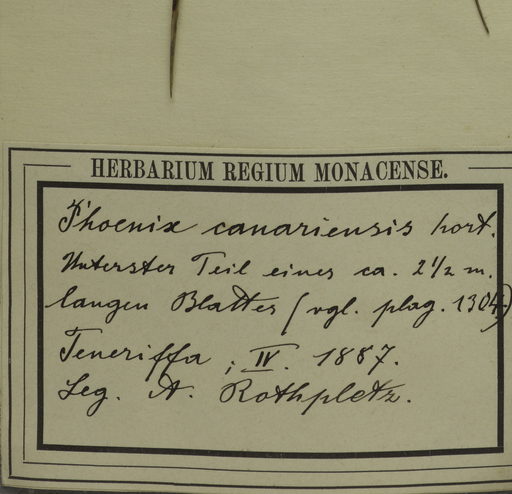 HERBARIUM REGIUM MONACENSE.
Phoenix canariensis hort.
Unterster Teil eines ca. 2 1/2 m.
langen Blattes (vgl. plag. 1304)
Teneriffa ; IV. 1887.
Leg. A. Rothpletz.